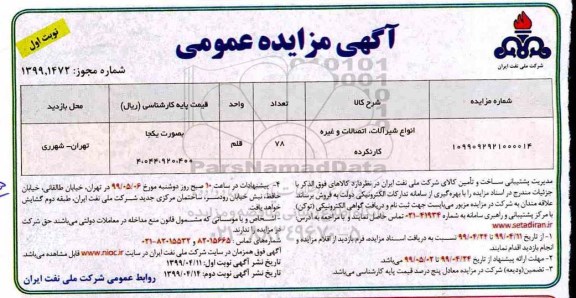 نوبت اول
آگهی مزایده عمومی
شرکت ملی نفت ایران
شماره مجوز: ۱۳۹۹.۱۴۷۲
شماره مزایده
شرح کالا
تعداد
واحد
قیمت پایه کارشناسی (ریال)
محل بازدید
۱۰۹۹۰۹۲۹۲۱۰۰۰۰۱۴
انواع شیرآلات، اتصالات و غیره
کارنکرده
۷۸
قلم
بصورت یکجا
۴۰۰۴۴۰۹۲۰.۴۰۰
تهران- شهرری
مدیریت پشتیبانی ساخت و تأمین کالای شرکت ملی نفت ایران در نظر دارد کالاهای فوق الذکر با
جزئیات مندرج در اسناد مزایده را با بهره‌گیری از سامانه تدارکات الکترونیکی دولت به فروش برساند.
علاقه مندان به شرکت در مزایده مزبور می‌بایست جهت ثبت نام و دریافت گواهی الکترونیکی (توکن)
با مرکز پشتیبانی و راهبری سامانه به شماره ۴۱۹۳۴-۰۲۱ تماس حاصل نمایند و با مراجعه به آدرس
www.setadiran.ir
۱- از تاریخ ۹۹/۰۴/۱۱ تا ۹۹/۰۴/۲۴ نسبت به دریافت اسناد مزایده، فرم بازدید از اقلام مزایده و
انجام بازدید اقدام نمایند.
۲- مهلت ارائه پیشنهاد از تاریخ ۹۹/۰۴/۲۴ تا ۹۹/۰۵/۰۲ می‌باشد.
۳- تضمین (ودیعه) شرکت در مزایده معادل پنج درصد قیمت پایه کارشناسی می‌باشد.
۴- پیشنهادات در ساعت ۱۰ صبح روز دوشنبه مورخ ۹۹/۰۵/۰۶ در تهران، خیابان طالقانی، خیابان
حافظ، نبش خیابان رودسر، ساختمان مرکزی جدید شرکت ملی نفت ایران، طبقه دوم گشایش
می‌یابد.
اشخاص و یا موسساتی که مشمول قانون منع مداخله در معاملات دولتی می‌باشند حق شرکت در
مزایده را ندارند.
شماره‌های تماس: ۸۳۰۱۵۶۶۵-۰۲۱ ۸۳۰۱۵۵۳۲-۰۲۱
آگهی فوق همزمان در سایت شرکت ملی نفت ایران در سایت www.nioc.ir قابل مشاهده می‌باشد.
تاریخ نشر آگهی نوبت اول: ۱۳۹۹/۰۴/۱۱
تاریخ نشر آگهی نوبت دوم: ۱۳۹۹/۰۴/۱۴
روابط عمومی شرکت ملی نفت ایران
ParsNamadData